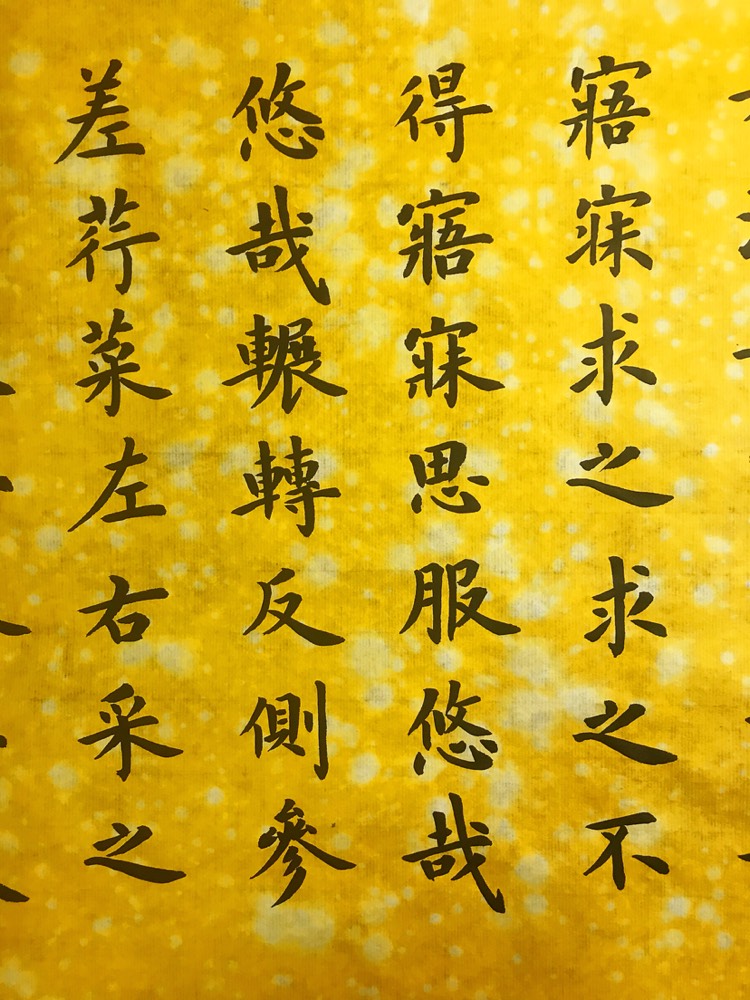 寤寐求之求之不
得寤寐思服悠哉
悠哉輾轉反側參
差荇菜左右采之